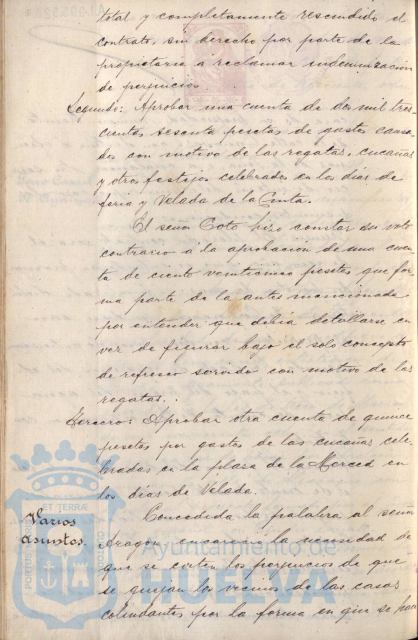 total y completamente rescindido el
contrato, sin derecho por parte de la
propietaria á reclamar indemnización
de perjuicios.
Segundo: Aprobar una cuenta de dos mil tres-
cientas sesenta pesetas de gastos causa-
dos con motivo de las regatas, cucañas
y otros festejos celebrados en los dias de
feria y Velada de la Cinta.
El señor Coto hizo constar su voto
contrario á la aprobación de una cuen-
ta de ciento veinticinco pesetas que for-
ma parte de la antes mencionada
por entender que debia detallarse en
vez de figurar bajo el solo concepto
de refresco servido con motivo de las
regatas.
Tercero: Aprobar otra cuenta de quince
pesetas por gastos de las cucañas cele-
bradas en la plaza de la Merced en
los dias de Velada.
Varios
asuntos.
Concedida la palabra al señor
Aragon encareció la necesidad de
que se corten los perjuicios de que
se quejan los vecinos de las casas
colindantes por la forma en que se han
Ayuntamiento de
HUELVA